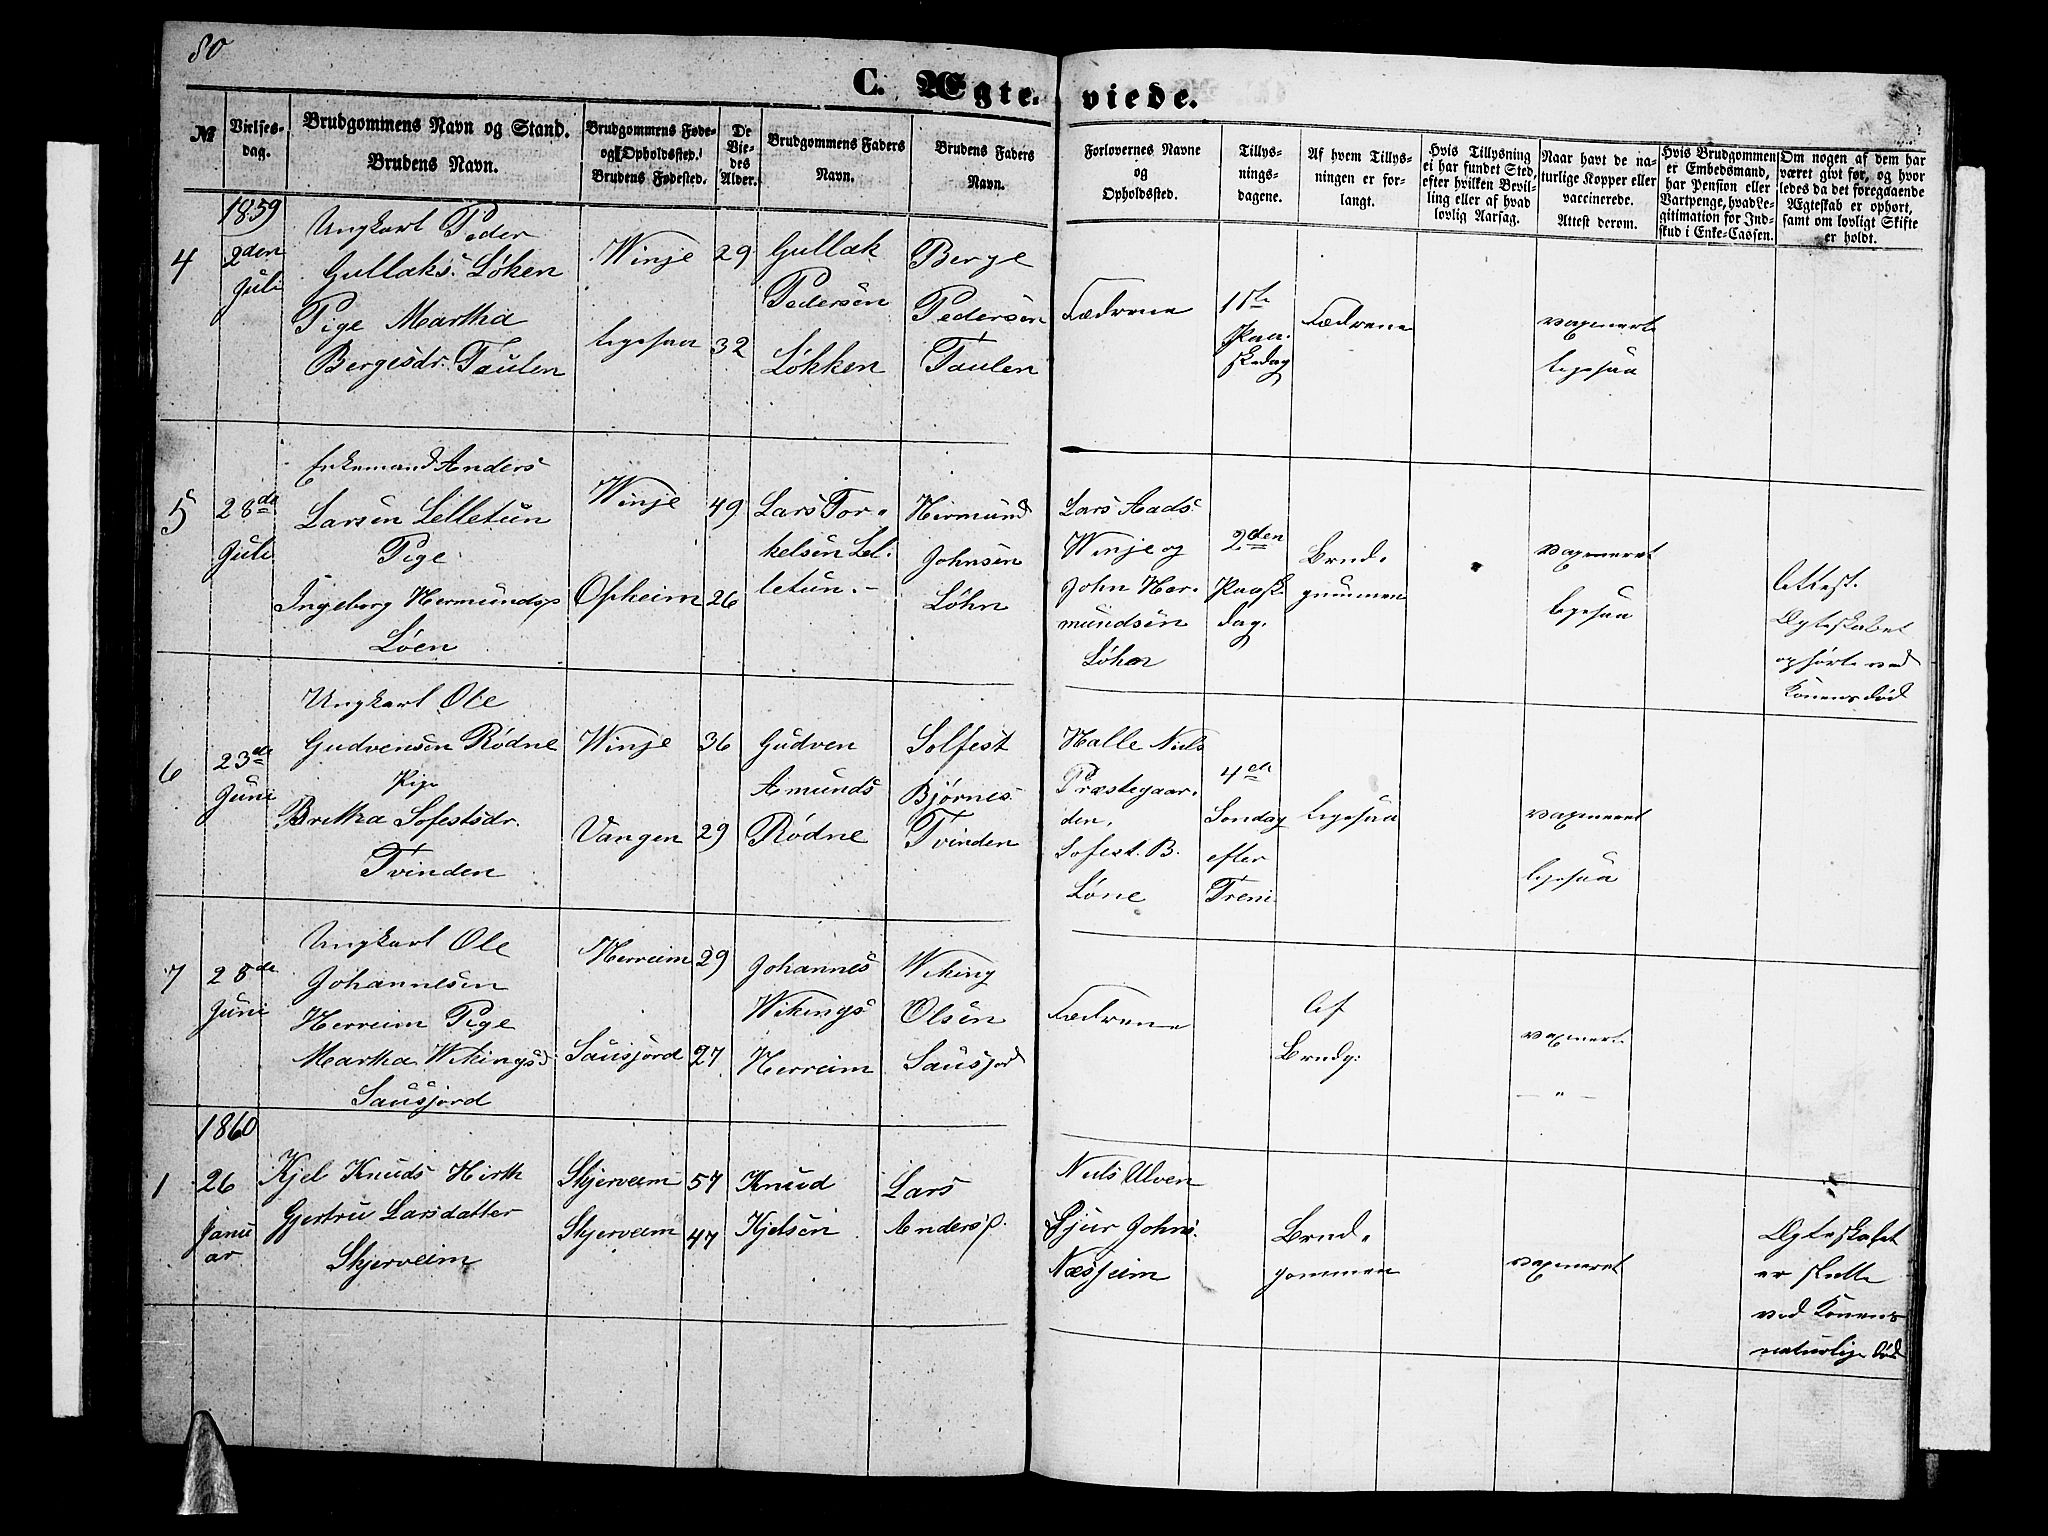 80
C. Ægte-
viede.
№
Vielses-
dag.
Brudgommens Navn og Stand.
Brudens Navn.
Brudgommens Føde-
og Opholdssted.
Brudens Fødested.
De
Vie-
des
Alder.
Brudgommens Faders
Navn.
Brudens Faders
Navn.
Forlovernes Navne
og
Opholdssted.
Tillys-
nings-
dagene.
Af hvem Tillys-
ningen er for-
langt.
Hvis Tillysning
ei har fundet Sted,
efter hvilken Bevil-
ling eller af hvad
lovlig Aarsag.
Naar havt de na-
turlige Kopper eller
vaccinerede.
Attest derom.
Hvis Brudgommen
er Embedsmand,
har Pension eller
Vartpenge, hvad Le-
gitimation for Ind-
skud i Enke-Cassen.
Om nogen af dem har
været gift før, og hvor
ledes da det foregaaende
Ægteskab er ophørt,
samt om lovligt Skifte
er holdt.
1859
4
2den
Juli
Ungkarl Peder
Gullaks. Løken
Pige Martha
Bergesdr. Taulen
Winje
ligesaa
29
32
Gullak
Pedersen
Løkken
Berge
Pedersen
Taulen
Fædrene
1ste
Paa-
skedag
Fædrene
vaxineret
ligesaa
5
28de
Juli
Enkemand Anders
Larsen Lilletun
Pige
Ingeborg Hermunds
Løen
Winje
Opheim
49
26
Lars Tor-
kelsen Lil-
letun.
Hermund
Johnsen
Løhn
Lars Aads
Winje og
John Her-
mundsen
Løhn
2den
Paask
dag.
Brud-
gummen
vaxineret
ligesaa
Attest.
Ægteskabet
ophørte ved
Konens død
6
23de
Juni
Ungkarl Ole
Gudvensen Rødne
Pige
Britha Sofestsdr.
Tvinden
Winje
Vangen
36
29
Gudven
Amunds
Rødne
Solfest
Bjørnes
Tvinden
Halle Niels
Præstegaar-
den.
Sofest. B.
Løne
4de
Søndag
efter
Treni
ligesaa
vaxineret
ligesaa
7
28de
Juni
Ungkarl Ole
Johannesen
Herreim Pige
Martha Wikingsd.
Sausjord
Herreim
Sausjord
29
27
Johannes
Wikings
Herreim
Wiking
Olsen
Sausjord
Fædrene
Af
Brudg:
vaxineret
— " —
1860
1
26
Janu
ar
Kjel Knuds Hirth
Gjertru Larsdatter
Skjerveim
Skjerveim
Skjerveim
57
47
Knud
Kjelsen
Lars
Anders.
Niels Ulven
Sjur Johns.
Næsheim
Brud-
gommen
vaxineret
Ægteskabet
er skilte
ved Konens
naturlige død